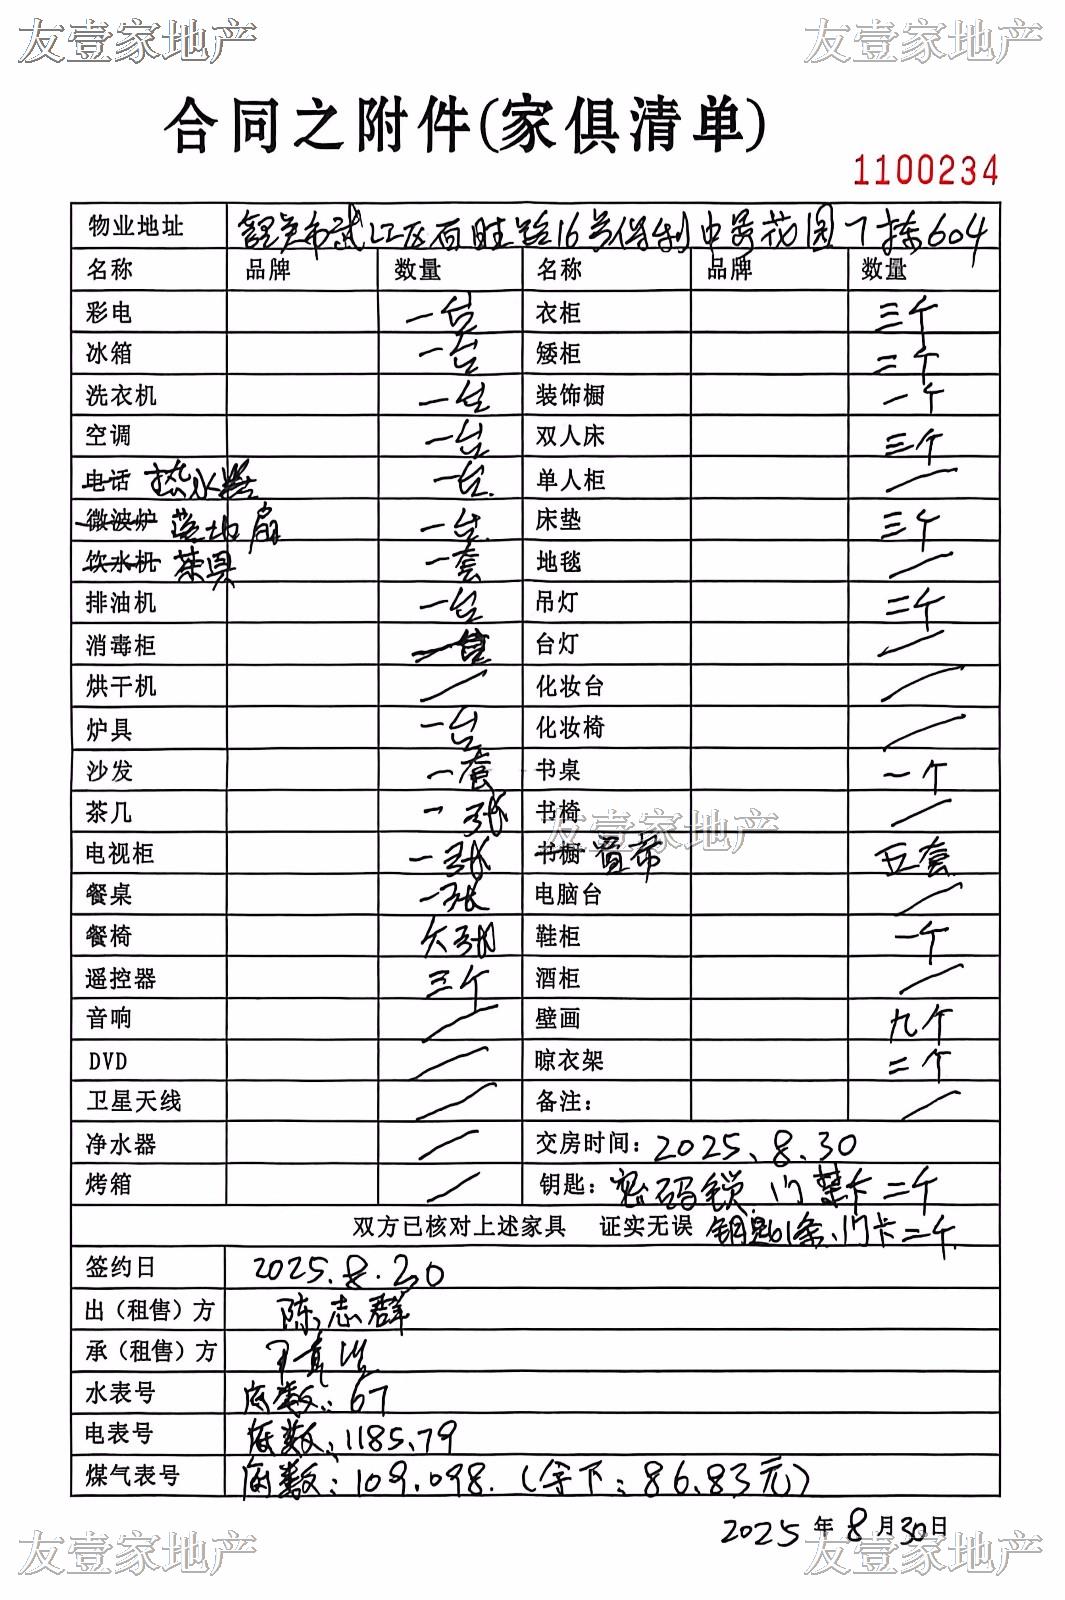 友壹家地产 友壹家地产
合同之附件(家俱清单)
1100234
物业地址 江区百旺路16号保利中景花园7栋604
名称 品牌 数量 名称 品牌 数量
彩电 一台 衣柜 三个
冰箱 一台 矮柜 二个
洗衣机 一台 装饰橱 一个
空调 一台 双人床 三个
电话 热水器 一台 单人柜 /
微波炉 落地扇 一台 床垫 三个
饮水机 茶具 一套 地毯 /
排油机 一台 吊灯 二个
消毒柜 一台 台灯 /
烘干机 / 化妆台 /
炉具 一台 化妆椅 /
沙发 一套 书桌 一个
茶几 一张 书椅 /
友壹家地产
电视柜 一张 书橱 窗帘 五套
餐桌 一张 电脑台 /
餐椅 六张 鞋柜 一个
遥控器 三个 酒柜 /
音响 / 壁画 九个
DVD / 晾衣架 二个
卫星天线 / 备注: /
净水器 / 交房时间: 2025.8.30
烤箱 / 钥匙: 密码锁 门禁卡二个
双方已核对上述家具 证实无误 钥匙1条、门卡二个
签约日 2025.8.30
出（租售）方 陈志群
承（租售）方 王
水表号 底数: 67
电表号 底数: 1185.79
煤气表号 底数: 109.098. (余下: 86.83元)
2025年8月30日
友壹家地产 友壹家地产